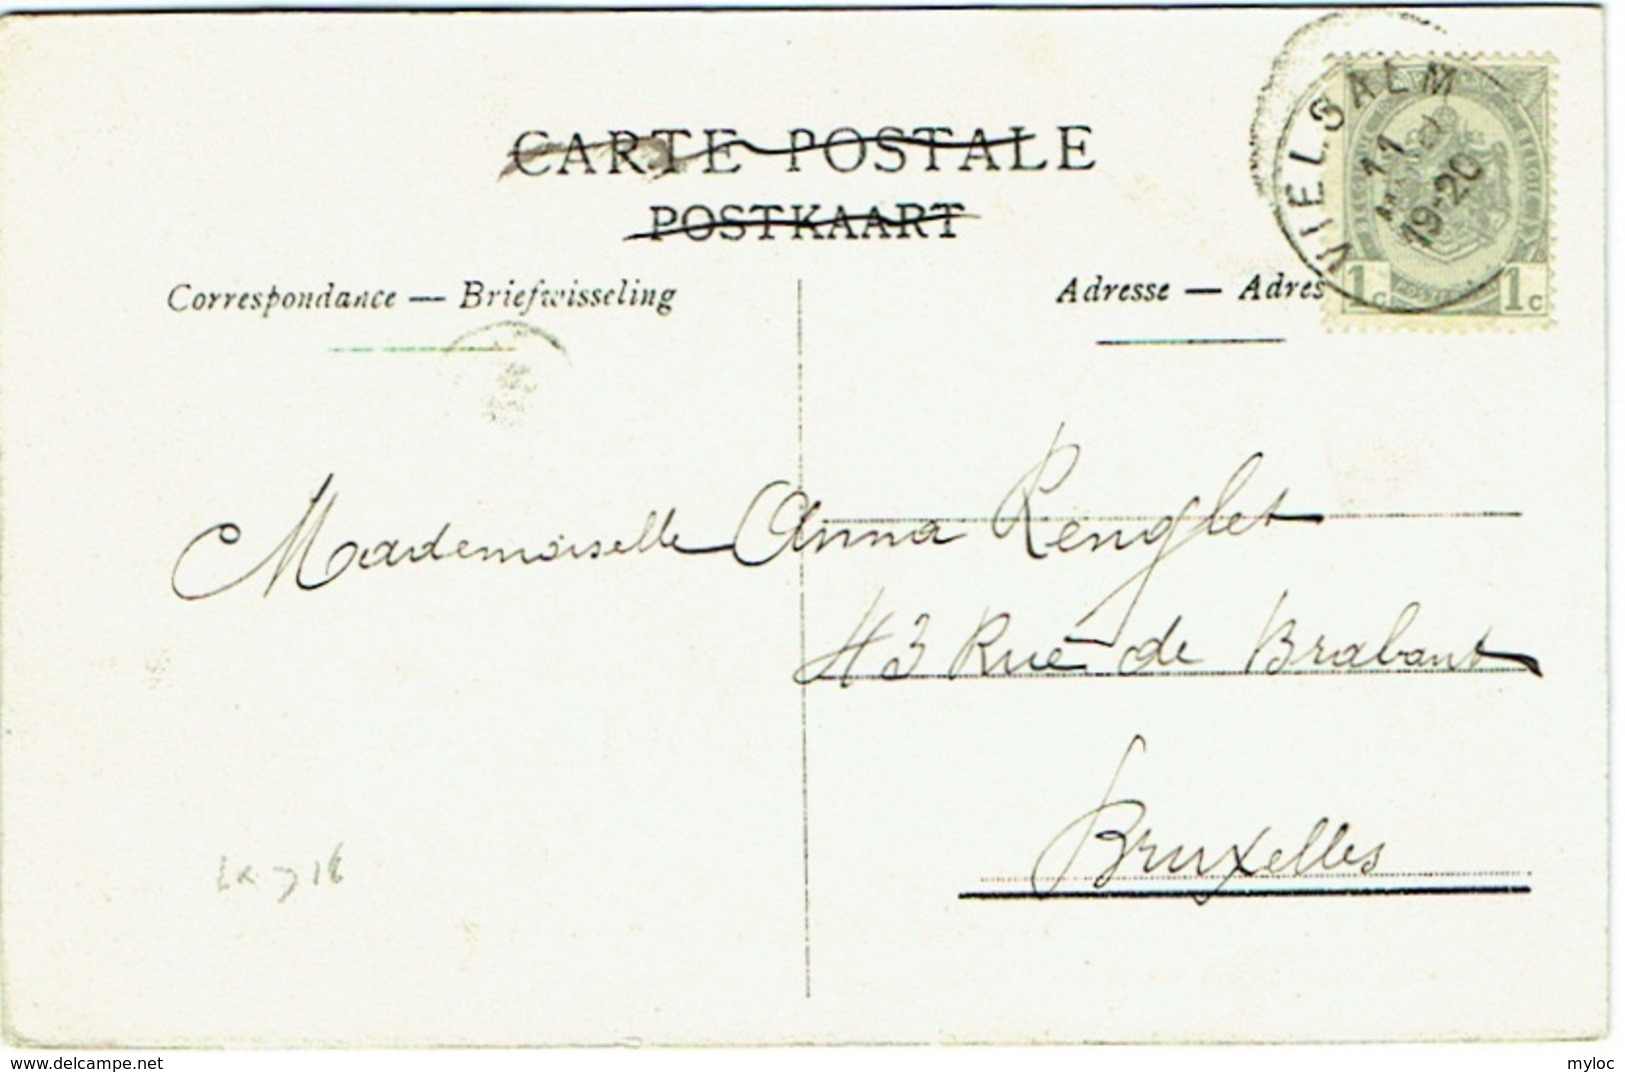 CARTE POSTALE
POSTKAART
Correspondance — Briefwisseling
Adresse — Adres
VIELSALM
11
19-20
1c 1c
Mademoiselle Anna Renglet
43 Rue de Brabant
Bruxelles
www.delcampe.net
myloc